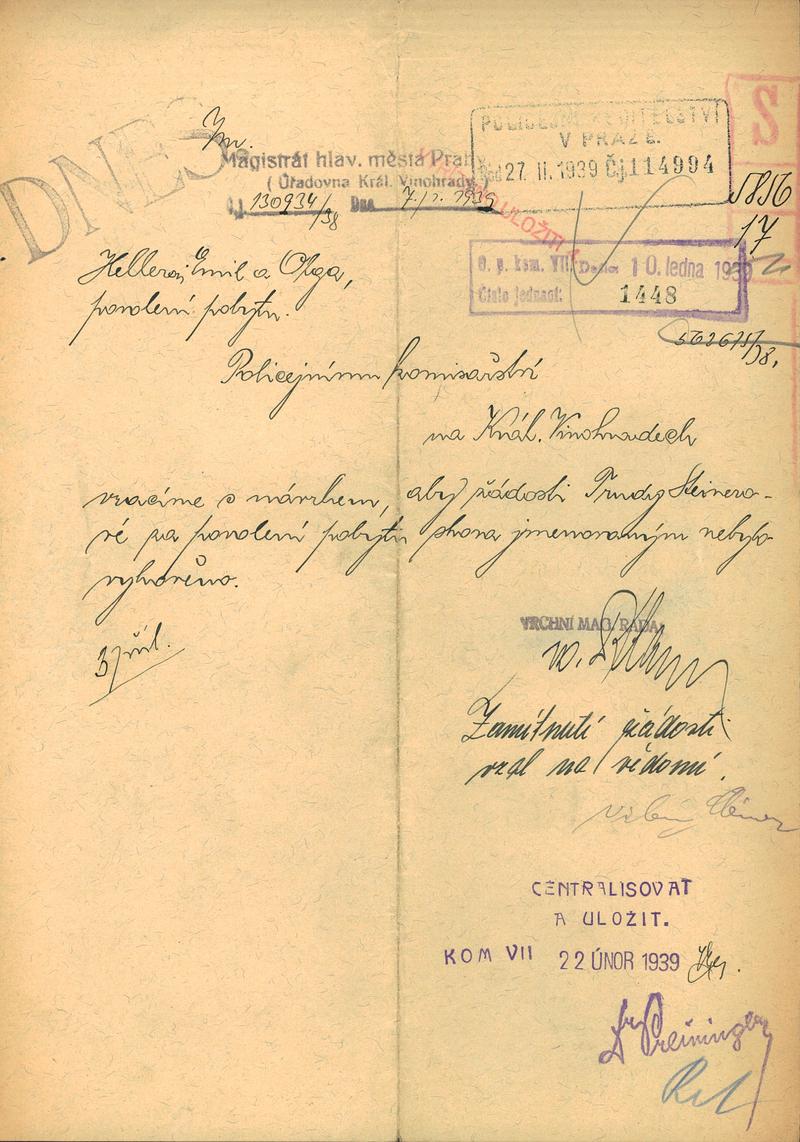 DNES
Magistrát hlav. města Prahy
( Úřadovna Král. Vinohrady )
Č.j. 130934/38 Dne 7./1. 1939
POLICEJNÍ ŘEDITELSTVÍ
V PRAZE.
27. II. 1939 Čj 114994
S
5856
17
ULOŽIT!
O. p. kom. VII. Došlo: 10. ledna 1939
Číslo jednací: 1448
Hellerovi Emil a Olga,
povolení pobytu.
Policejnímu komisařství
na Král. Vinohradech
vracíme s návrhem, aby žádosti Trudy Steinero-
vé za povolení pobytu shora jmenovaným nebylo
vyhověno.
3 příl.
VRCHNÍ MAG. RADA:
Zamítnutí žádosti
vzal na vědomí.
CENTRALISOVAT
A ULOŽIT.
KOM VII 22 ÚNOR 1939
Dr Preininger